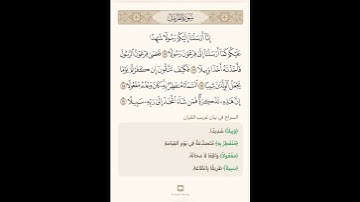 سُورَةُ المُزَّمِّل
إِنَّا أَرْسَلْنَا إِلَيْكُمْ رَسُولًا شَٰهِدًا
عَلَيْكُمْ كَمَا أَرْسَلْنَا إِلَىٰ فِرْعَوْنَ رَسُولًا ۝ فَعَصَىٰ فِرْعَوْنُ الرَّسُولَ
فَأَخَذْنَٰهُ أَخْذًا وَبِيلًا ۝ فَكَيْفَ تَتَّقُونَ إِن كَفَرْتُمْ يَوْمًا
يَجْعَلُ الْوِلْدَٰنَ شِيبًا ۝ السَّمَاءُ مُنفَطِرٌ بِهِ كَانَ وَعْدُهُ مَفْعُولًا ۝
إِنَّ هَٰذِهِ تَذْكِرَةٌ فَمَن شَاءَ اتَّخَذَ إِلَىٰ رَبِّهِ سَبِيلًا ۝
السراج في بيان غريب القرآن
﴿وَبِيلًا﴾ شَدِيدًا.
﴿مُنفَطِرٌ بِهِ﴾ مُتَصَدِّعَةٌ فِي يَوْمِ القِيَامَةِ.
﴿مَفْعُولًا﴾ وَاقِعًا لَا مَحَالَةَ.
﴿سَبِيلًا﴾ طَرِيقًا بِالطَّاعَةِ.